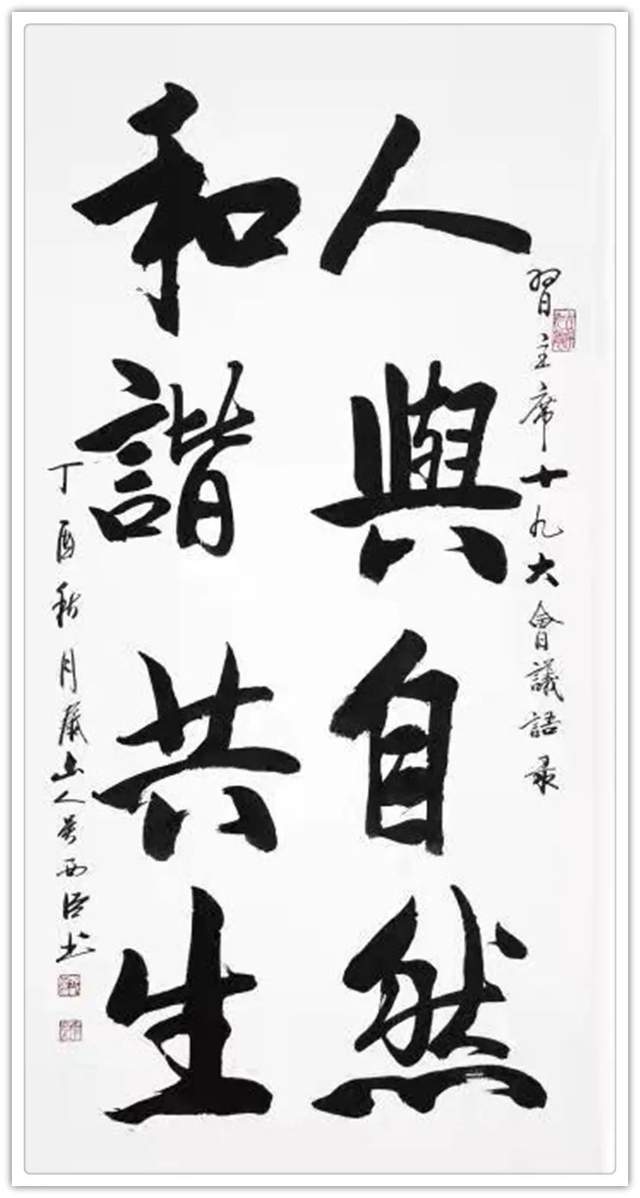 習主席十九大會議語录
人與自然
和諧共生
丁酉秋月嚴山人吴西臣书